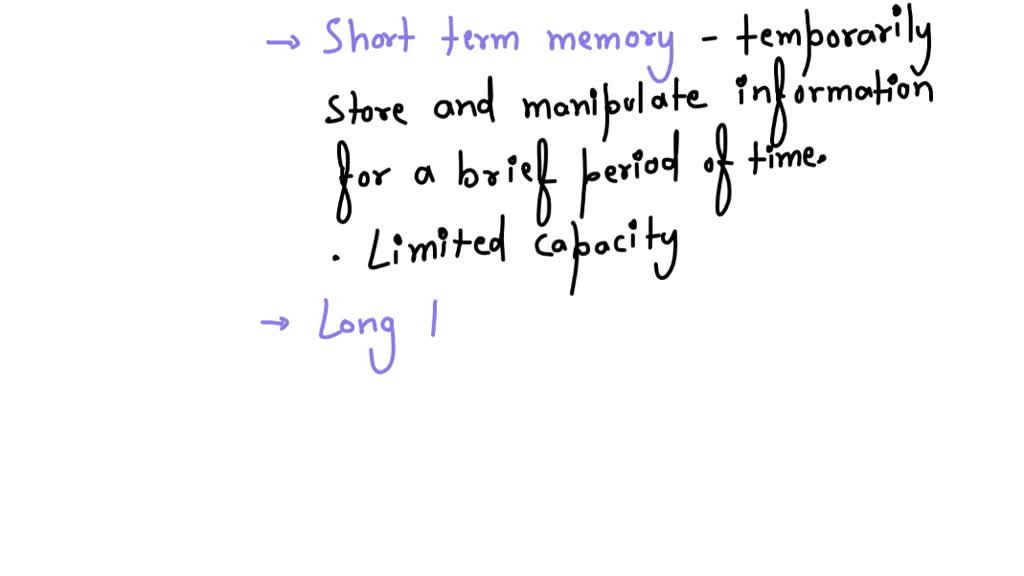 → Short term memory - temporarily
store and manipulate information
for a brief period of time.
. Limited capacity
→ Long